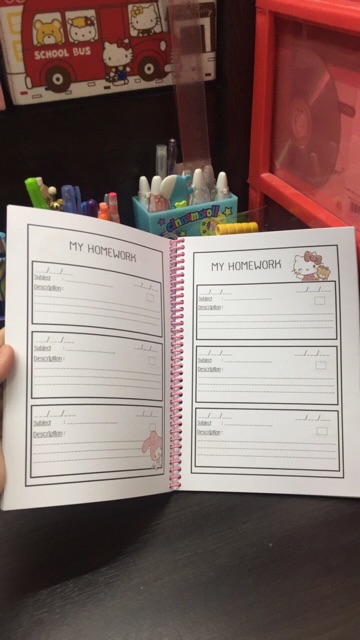 SCHOOL BUS
cinnamoroll
MY HOMEWORK
__/__/__ __/__/__
Subject : ____________
Description :
__/__/__ __/__/__
Subject : ____________
Description :
__/__/__ __/__/__
Subject : ____________
Description :
MY HOMEWORK
__/__/__ __/__/__
Subject : ____________
Description :
__/__/__ __/__/__
Subject : ____________
Description :
__/__/__ __/__/__
Subject : ____________
Description :